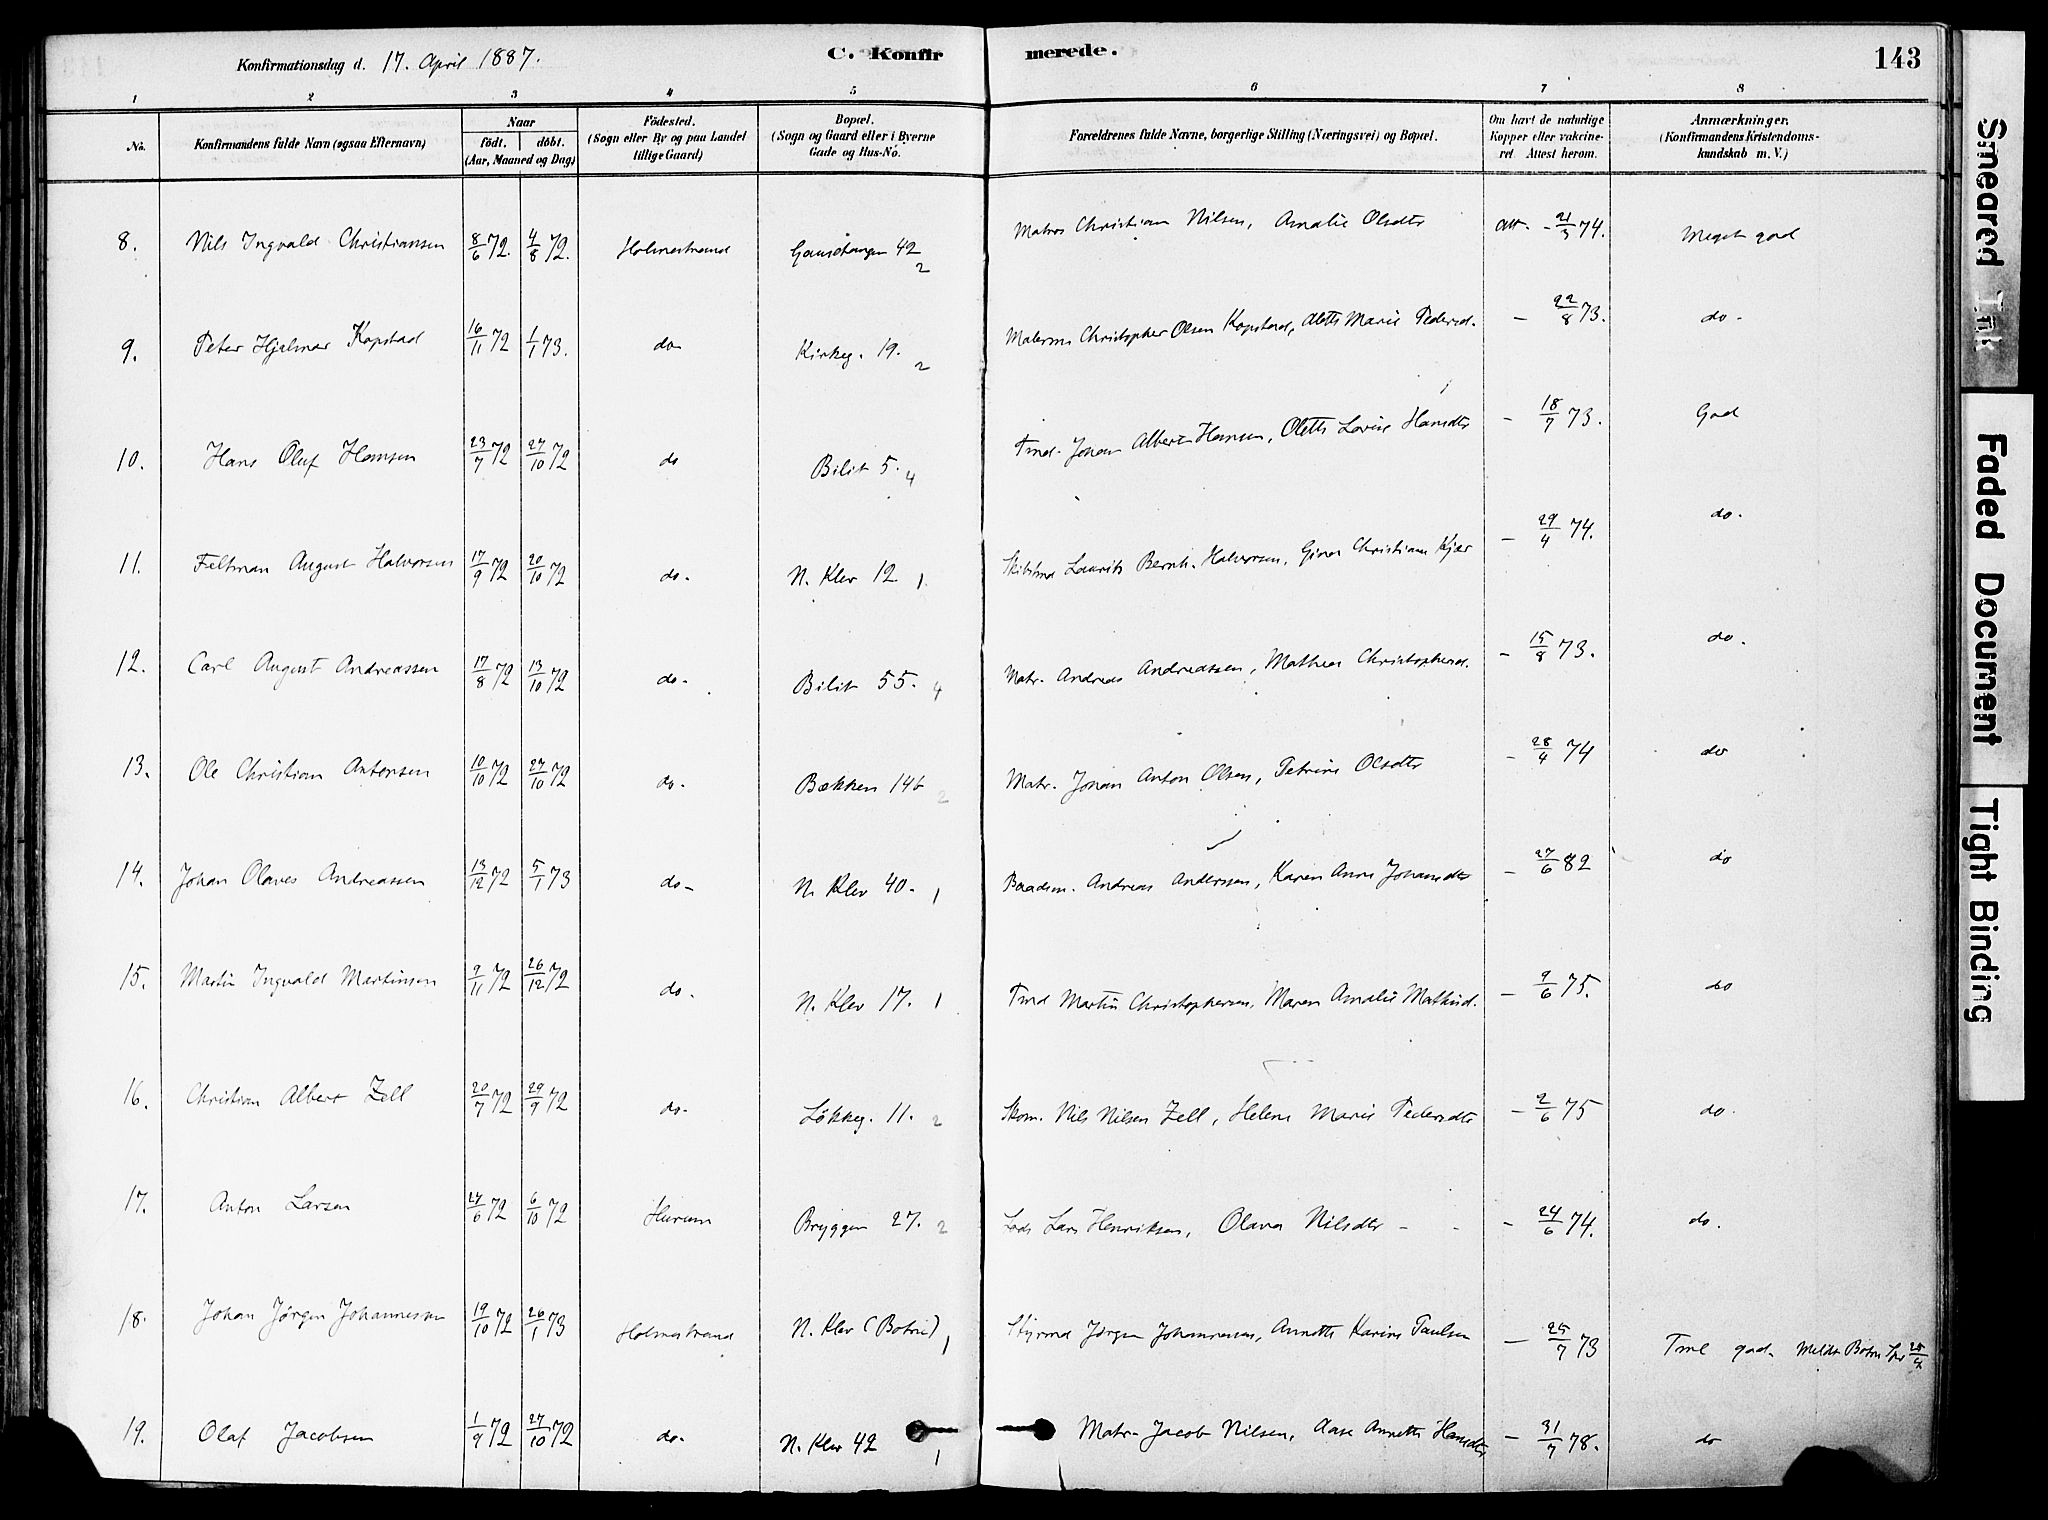 Konfirmationsdag d. 17. April 1887. C. Konfirmerede. 143
1 2 3 4 5 6 7 8
No. Konfirmandens fulde Navn (ogsaa Efternavn) Naar födt. döbt. (Aar, Maaned og Dag) Födested. (Sogn eller By og paa Landet tillige Gaard) Bopæl. (Sogn og Gaard eller i Byerne Gade og Hus-No. Forældrenes fulde Navne, borgerlige Stilling (Næringsvei) og Bopæl. Om havt de naturlige Kopper eller vakcineret. Attest herom. Anmærkninger. (Konfirmandens Kristendomskundskab m. V.)
8. Nils Ingvald Christiansen 8/6 72. 4/8 72. Holmestrand 42 2 Matros Christian Nilsen, Amalie Olsdtr att. - 21/3 74. Meget god
9. Peter Hjalmar Kopstad 16/11 72 1/1 73. do Kirkeg. 19. 2 Christopher Olsen Kopstad, Marie Pedersd. - 22/8 73. do.
10. Hans Oluf Hansen 23/7 72 27/10 72 do Bilit 5. 4 Tmd. Johan Albert Hansen, Olette Lovise Hansdtr - 18/7 73. God
11. Feltman August Halvorsen 17/9 72 20/10 72 do. N. Klev 12 1. Laurits Bernh. Halvorsen, Christiane Kjær - 29/4 74. do.
12. Carl August Andreassen 17/8 72 13/10 72 do. Bilit 55. 4 Matr. Andreas Andreassen, Mathea Christophersd. - 15/8 73. do.
13. Ole Christian Antonsen 10/10 72 27/10 72 do. Bækken 146 2 Matr. Johan Anton Olsen, Petrine Olsdtr - 28/4 74 do
14. Johan Olaves Andreassen 13/12 72 5/1 73 do. N. Klev 40. 1 Baadsm. Andreas Anderssen, Karen Anne Johansdtr - 27/6 82 do
15. Martin Ingvald Martinsen 9/11 72 26/12 72 do. N. Klev 17. 1 Tmd Martin Christophersen, Maren Amalie - 9/6 75. do
16. Christian Albert Zell 20/7 72 29/9 72 do. Løkkeg. 11. 2 Skom. Nils Nilsen Zell, Helene Marie Pedersdtr - 2/6 75 do.
17. Anton Larsen 27/6 72 6/10 72 Hurum Bryggen 27. 2 Lods Lars Henriksen, Olava Nilsdtr - - - 24/6 74. do.
18. Johan Jørgen Johannessen 19/10 72 26/1 73 Holmestrand N. Klev (Botne) 1 Styrmd Jørgen Johannesen, Annette Karine Paulsen - 25/7 73 Tml god. Meldt Botne Spr
19. Olaf Jacobsen 1/9 72 27/10 72 do. N. Klev 42 1 Matr. Jacob Nilsen, Aase Annette Hansdtr - 31/7 78. do
Smeared Ink
Faded Document
Tight Binding